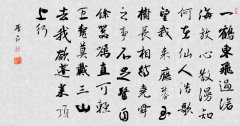 一鶴東飛過滄
海放心散漫知
何在仙人浩歌
望我來應攀玉
樹長相待堯舜
之事不足驚自
餘囂囂直可輕
巨鰲莫戴三山
去我欲蓬萊頂
上行